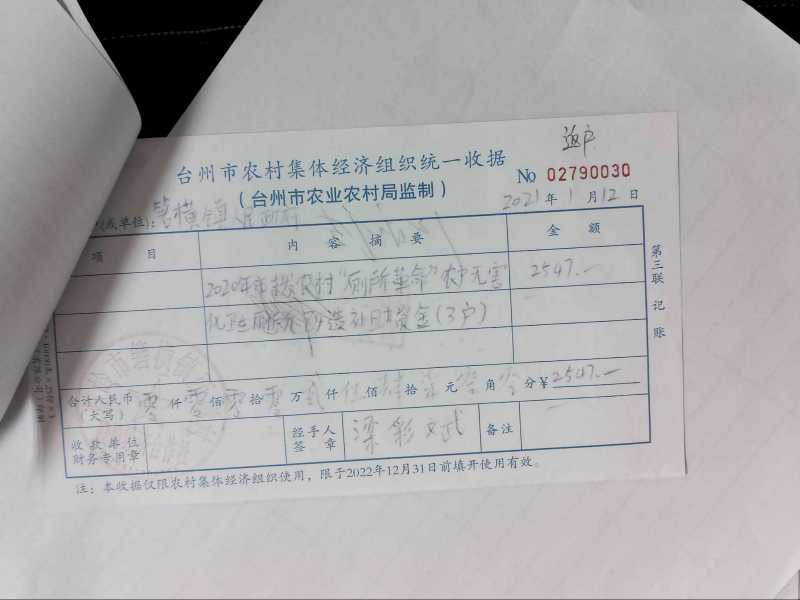 返户
台州市农村集体经济组织统一收据
No 02790030
(台州市农业农村局监制)
2021年1月12日
(或单位):管横镇
项目 内容摘要 金额
2020年 农村“厕所革命”农户无害 2547.—
化卫生厕所 造补助资金(3户)
合计人民币
(大写) 零仟零佰零拾零万贰仟伍佰肆拾柒元零角零分¥2547.—
收款单位
财务专用章
经手人
签章
梁彩
备注
第三联 记账
注:本收据仅限农村集体经济组织使用,限于2022年12月31日前填开使用有效。